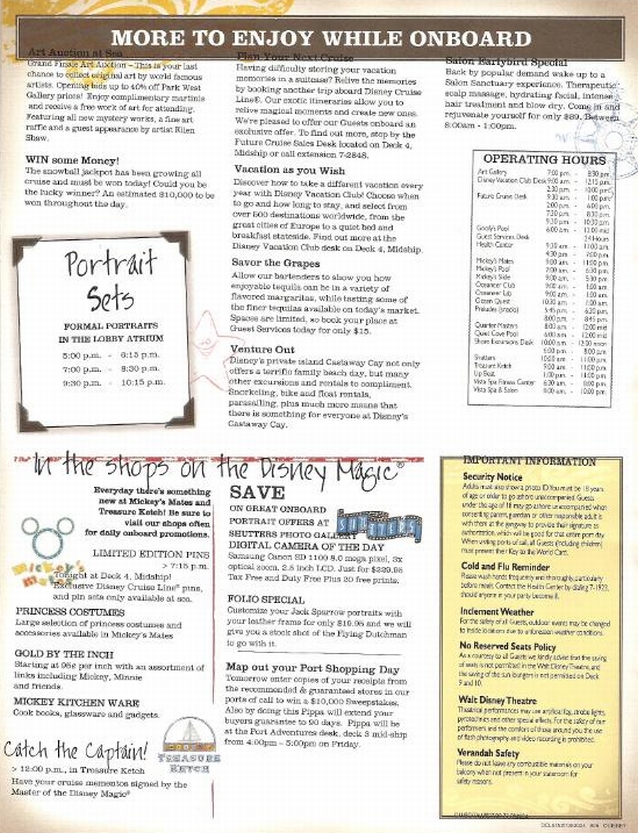 MORE TO ENJOY WHILE ONBOARD
Art Auction at Sea
Grand Finale Art Auction - This is your last
chance to collect original art by world famous
artists. Opening bids up to 40% off Park West
Gallery prices! Enjoy complimentary martinis
and receive a free work of art for attending.
Featuring all new mystery works, a fine art
raffle and a guest appearance by artist Rilen
Shaw.
WIN some Money!
The snowball jackpot has been growing all
cruise and must be won today! Could you be
the lucky winner? An estimated $10,000 to be
won throughout the day.
Portrait
Sets
FORMAL PORTRAITS
IN THE LOBBY ATRIUM
5:00 p.m. - 6:15 p.m.
7:00 p.m. - 8:30 p.m.
9:30 p.m. - 10:15 p.m.
Plan Your Next Cruise
Having difficulty storing your vacation
memories in a suitcase? Relive the memories
by booking another trip aboard Disney Cruise
Line®. Our exotic itineraries allow you to
relive magical moments and create new ones.
We're pleased to offer our Guests onboard an
exclusive offer. To find out more, stop by the
Future Cruise Sales Desk located on Deck 4,
Midship or call extension 7-2848.
Vacation as you Wish
Discover how to take a different vacation every
year with Disney Vacation Club! Choose when
to go and how long to stay, and select from
over 500 destinations worldwide, from the
great cities of Europe to a quiet bed and
breakfast stateside. Find out more at the
Disney Vacation Club desk on Deck 4, Midship.
Savor the Grapes
Allow our bartenders to show you how
enjoyable tequila can be in a variety of
flavored margaritas, while tasting some of
the finer tequilas available on today's market.
Spaces are limited, so book your place at
Guest Services today for only $15.
Venture Out
Disney's private island Castaway Cay not only
offers a terrific family beach day, but many
other excursions and rentals to compliment.
Snorkeling, bike and float rentals,
parasailing, plus much more means that
there is something for everyone at Disney's
Castaway Cay.
Salon Earlybird Special
Back by popular demand wake up to a
Salon Sanctuary experience. Therapeutic
scalp massage, hydrating facial, intense
hair treatment and blow dry. Come in and
rejuvenate yourself for only $89. Between
8:00am - 1:00pm.
OPERATING HOURS
Art Gallery 7:00 pm - 8:30 pm
Disney Vacation Club Desk 9:00 am - 12:15 pm
2:30 pm - 10:00 pm
Future Cruise Desk 9:30 am - 1:00 pm
2:00 pm - 6:00 pm
7:30 pm - 8:30 pm
9:30 pm - 10:30 pm
Goofy's Pool 6:00 am - 11:00 mid
Guest Services Desk 24 Hours
Health Center 9:30 am - 11:00 am
4:30 pm - 7:00 pm
Mickey's Mates 9:00 am - 11:00 pm
Mickey's Pool
Mickey's Slide
Oceaneer Club
Oceaneer Lab
Ocean Quest
Preludes (snacks)
Quarter Masters
Quiet Cove Pool
Shore Excursions Desk
Shutters
Treasure Ketch
Up Beat
Vista Spa Fitness Center
Vista Spa & Salon
In the shops on the Disney Magic®
Everyday there's something
new at Mickey's Mates and
Treasure Ketch! Be sure to
visit our shops often
for daily onboard promotions.
Mickey's
Mates
LIMITED EDITION PINS
> 7:15 p.m.
Tonight at Deck 4, Midship!
Exclusive Disney Cruise Line® pins,
and pin sets only available at sea.
PRINCESS COSTUMES
Large selection of princess costumes and
accessories available in Mickey's Mates
GOLD BY THE INCH
Starting at 98¢ per inch with an assortment of
links including Mickey, Minnie
and friends.
MICKEY KITCHEN WARE
Cook books, glassware and gadgets.
Catch the Captain!
> 12:00 p.m., in Treasure Ketch
Have your cruise mementos signed by the
Master of the Disney Magic®
TREASURE
KETCH
SAVE
ON GREAT ONBOARD
PORTRAIT OFFERS AT
SHUTTERS PHOTO GALLERY
SHUTTERS
DIGITAL CAMERA OF THE DAY
Samsung Canon SD 1100 8.0 mega pixel, 3x
optical zoom, 2.5 inch LCD. Just for $239.95
Tax Free and Duty Free Plus 30 free prints.
FOLIO SPECIAL
Customize your Jack Sparrow portraits with
your leather frames for only $10.95 and we will
give you a stock shot of the Flying Dutchman
to go with it.
Map out your Port Shopping Day
Tomorrow enter copies of your receipts from
the recommended & guaranteed stores in our
ports of call to win a $10,000 Sweepstakes.
Also by doing this Pippa will extend your
buyers guarantee to 90 days. Pippa will be
at the Port Adventures desk, deck 3 mid-ship
from 4:00pm - 5:00pm on Friday.
IMPORTANT INFORMATION
Security Notice
Adults must also show a photo ID. You must be 18 years
of age or older to go ashore unaccompanied. Guests
under the age of 18 may go ashore unaccompanied when
consenting parent, guardian or other responsible adult is
with them at the gangway to provide their signature as
authorization, which will be good for that entire port day.
When visiting ports of call, all Guests (including children)
must present their Key to the World Card.
Cold and Flu Reminder
Please wash hands frequently and thoroughly, particularly
before meals. Contact the Health Center by dialing 7-1923,
should anyone in your party become ill.
Inclement Weather
For the safety of all Guests, outdoor events may be changed
to inside locations due to unforeseen weather conditions.
No Reserved Seats Policy
As a courtesy to all Guests we kindly advise that the saving
of seats is not permitted in the Walt Disney Theatre, and
the saving of sun loungers is not permitted on Deck
9 and 10.
Walt Disney Theatre
Theatrical performances may use artificial fog, strobe lights,
pyrotechnics and other special effects. For the safety of our
performers and the comfort of those around you the use
of flash photography and video recording is prohibited.
Verandah Safety
Please do not leave any combustible materials on your
balcony when not present in your stateroom for
safety reasons.